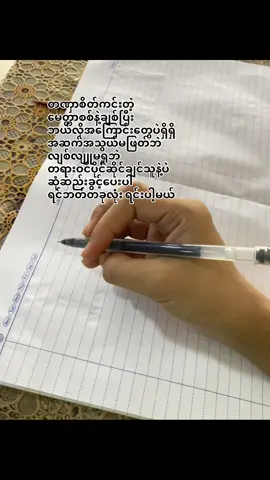 တဏှာစိတ်ကင်းတဲ့
မေတ္တာစစ်နဲ့ချစ်ပြီး
ဘယ်လိုအကြောင်းတွေပဲရှိရှိ
အဆက်အသွယ်မဖြတ်ဘဲ
လျစ်လျူမရှုဘဲ
တရားဝင်ပိုင်ဆိုင်ချင်သူနဲ့ပဲ
ဆုံဆည်းခွင့်ပေးပါ
ရင်ဘတ်တစ်ခုလုံး ရင်းပါ့မယ်